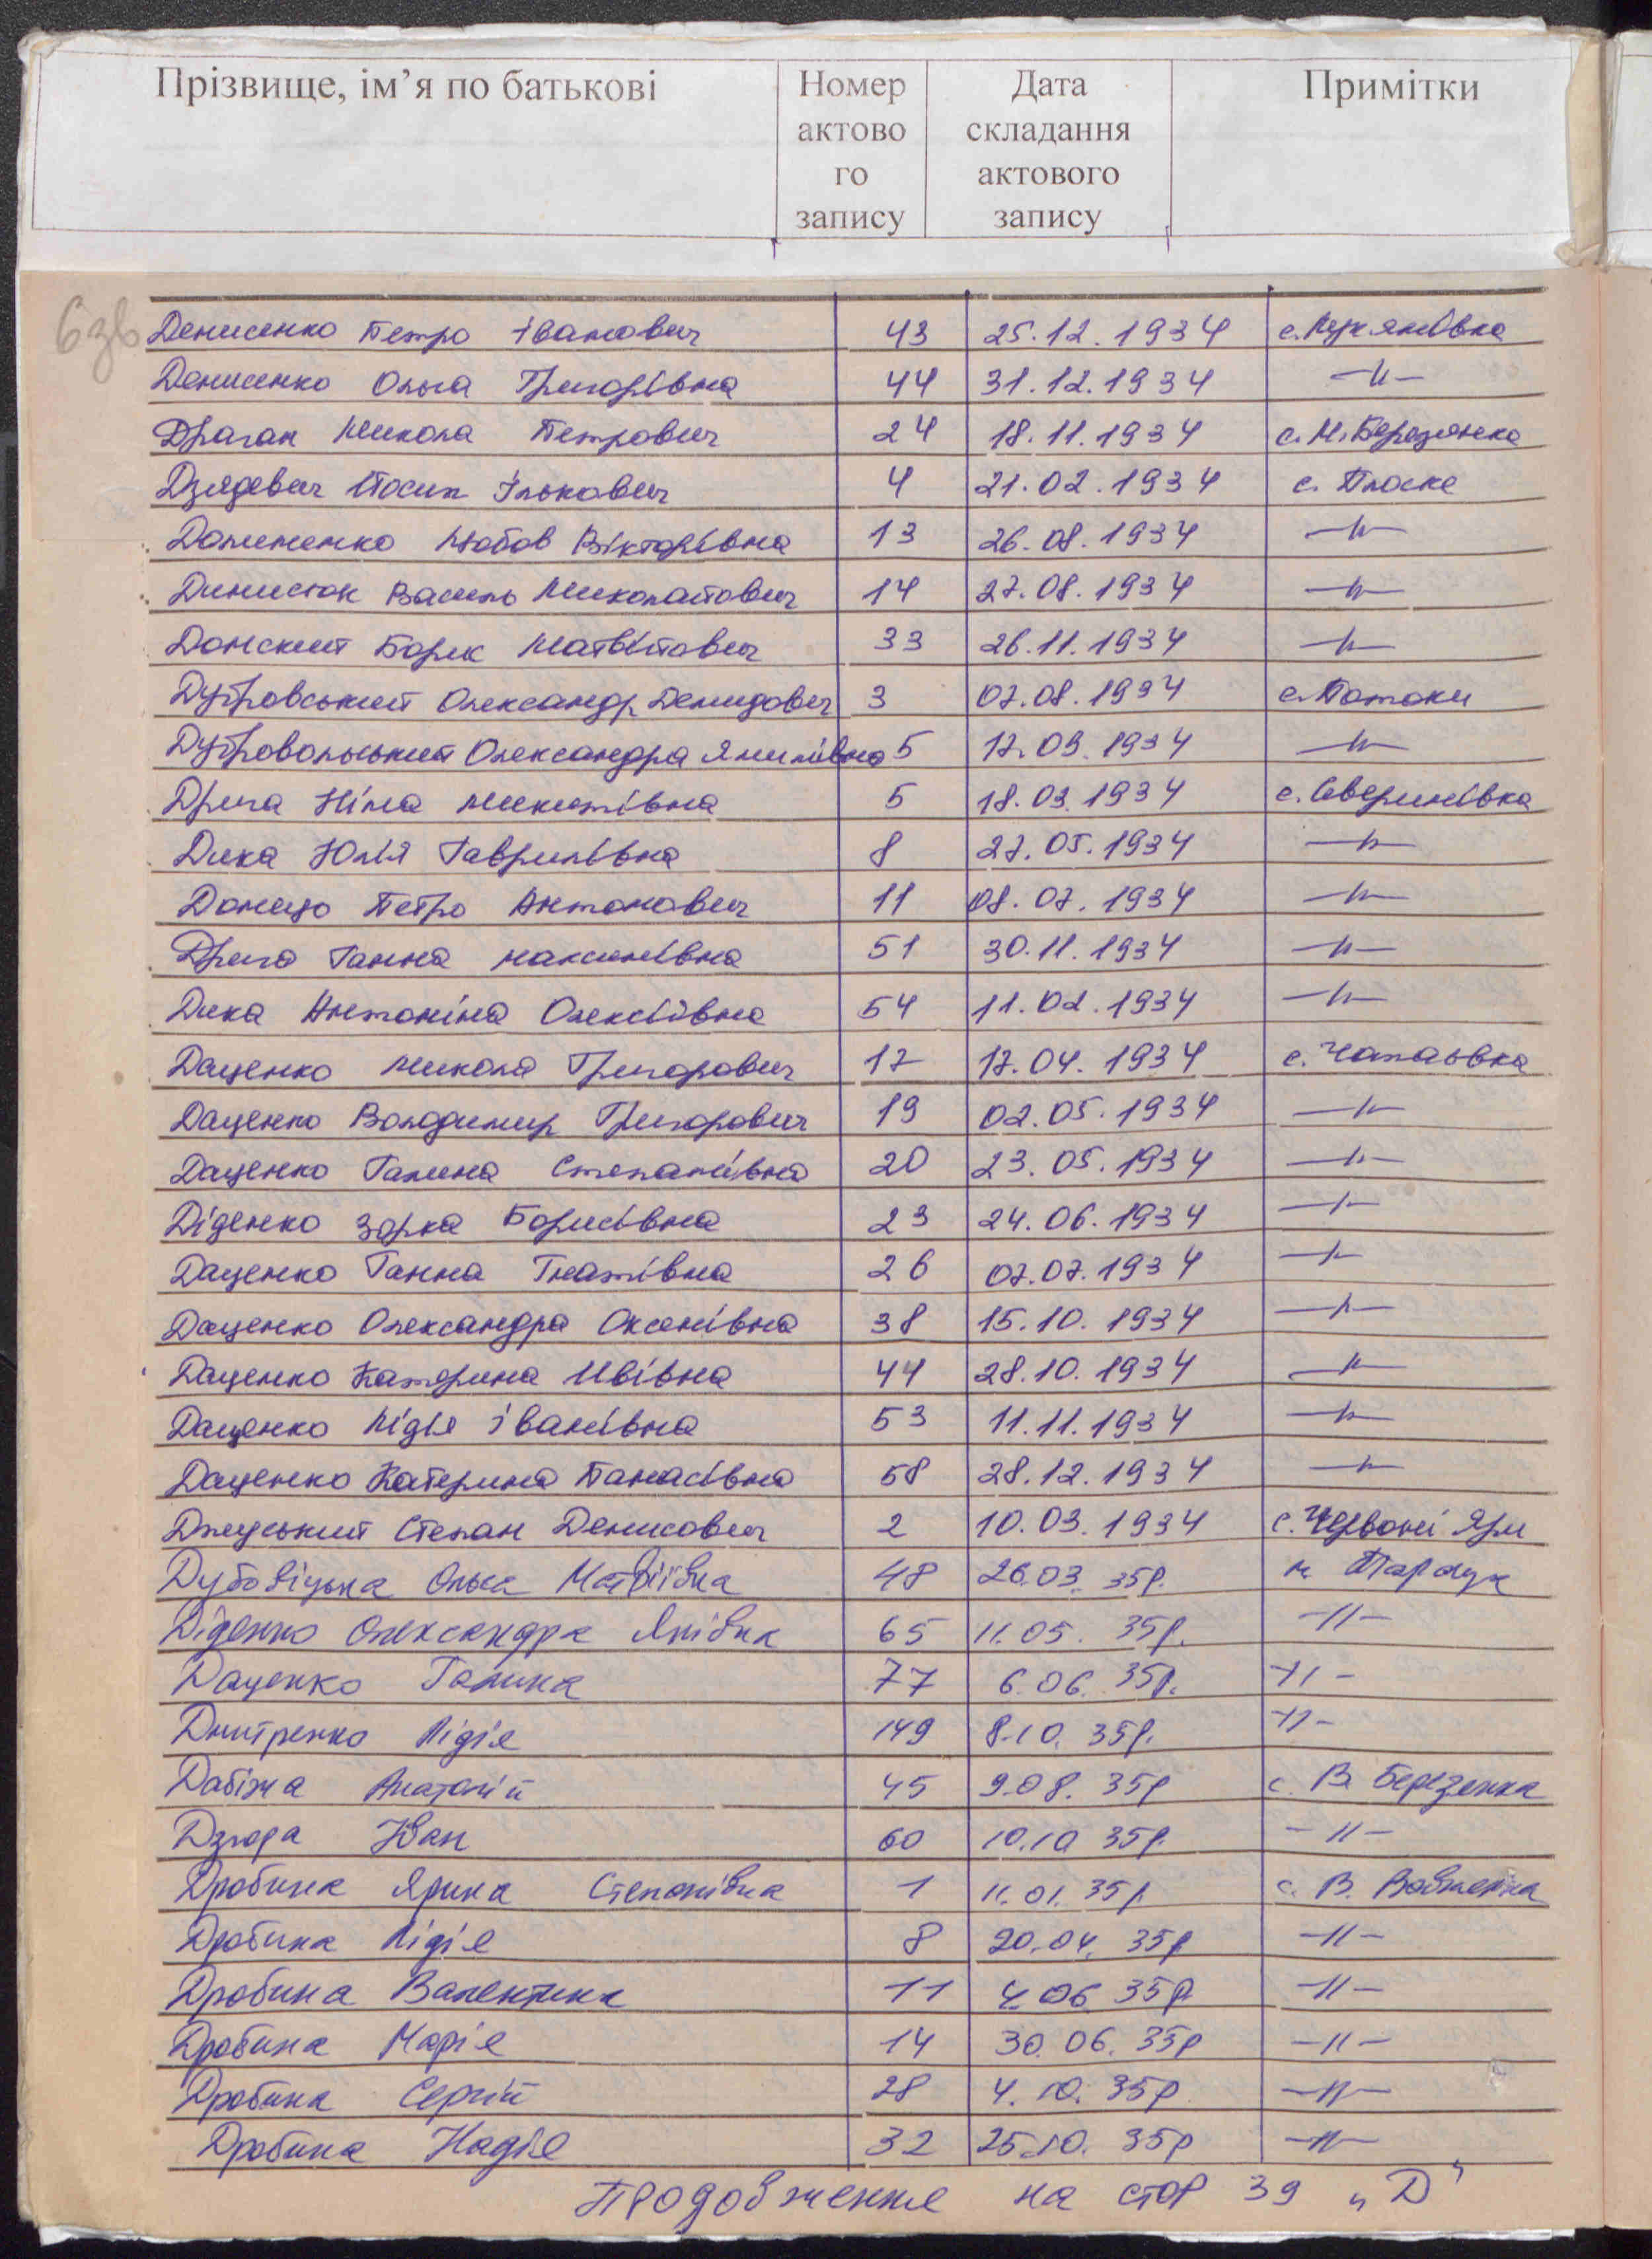 Прізвище, ім’я по батькові Номер актово го запису Дата складання актового запису Примітки
6зв
Денисенко Петро Іванович 43 25.12.1934 с. Лук'янівка
Денисенко Ольга Григорівна 44 31.12.1934 -"-
Драган Микола Петрович 24 18.11.1934 с. М. Березянка
Дзядевич Йосип Ількович 4 21.02.1934 с. Плоске
Долененко Любов Вікторівна 13 26.08.1934 -"-
Динисюк Василь Миколайович 14 27.08.1934 -"-
Донський Борис Матвійович 33 26.11.1934 -"-
Дубровський Олександр Демидович 3 07.08.1934 с. Потоки
Олександра 5 17.09.1934 -"-
Дрига Ніна Микитівна 5 18.03.1934 с. Северинівка
Дика Юлія Гаврилівна 8 27.05.1934 -"-
Петро Антонович 11 08.07.1934 -"-
Дрига Ганна Максимівна 51 30.11.1934 -"-
Дика Антоніна Олексіївна 54 11.02.1934 -"-
Даценко Микола Григорович 17 17.04.1934 с. Чапаєвка
Даценко Володимир Григорович 19 02.05.1934 -"-
Даценко Галина Степанівна 20 23.05.1934 -"-
Діденко Зорка Борисівна 23 24.06.1934 -"-
Даценко Ганна Гнатівна 26 07.07.1934 -"-
Даценко Олександра Оксенівна 38 15.10.1934 -"-
Даценко Катерина 44 28.10.1934 -"-
Даценко Лідія Іванівна 53 11.11.1934 -"-
Даценко Катерина Панасівна 58 28.12.1934 -"-
Степан Денисович 2 10.03.1934 с. Червоні Яри
Дубовіцька Ольга Матвіївна 48 26.03.35р. м. Таращ
Діденко Олександра 65 11.05.35р. -"-
Даценко Галина 77 6.06.35р. -"-
Дмитренко Лідія 149 8.10.35р. -"-
Дабіжа Анатолій 45 9.08.35р с. В. Березянка
Дзюра Іван 60 10.10 35р. -"-
Дробина Ярина Степанівна 1 11.01.35р с. В. Вовнянка
Дробина Лідія 8 20.04.35р -"-
Дробина Валентина 11 4.06 35р. -"-
Дробина Марія 14 30.06.35р -"-
Дробина Сергій 28 4.10.35р -"-
Дробина Надія 32 25.10.35р -"-
Продовження на стор 39 „Д"